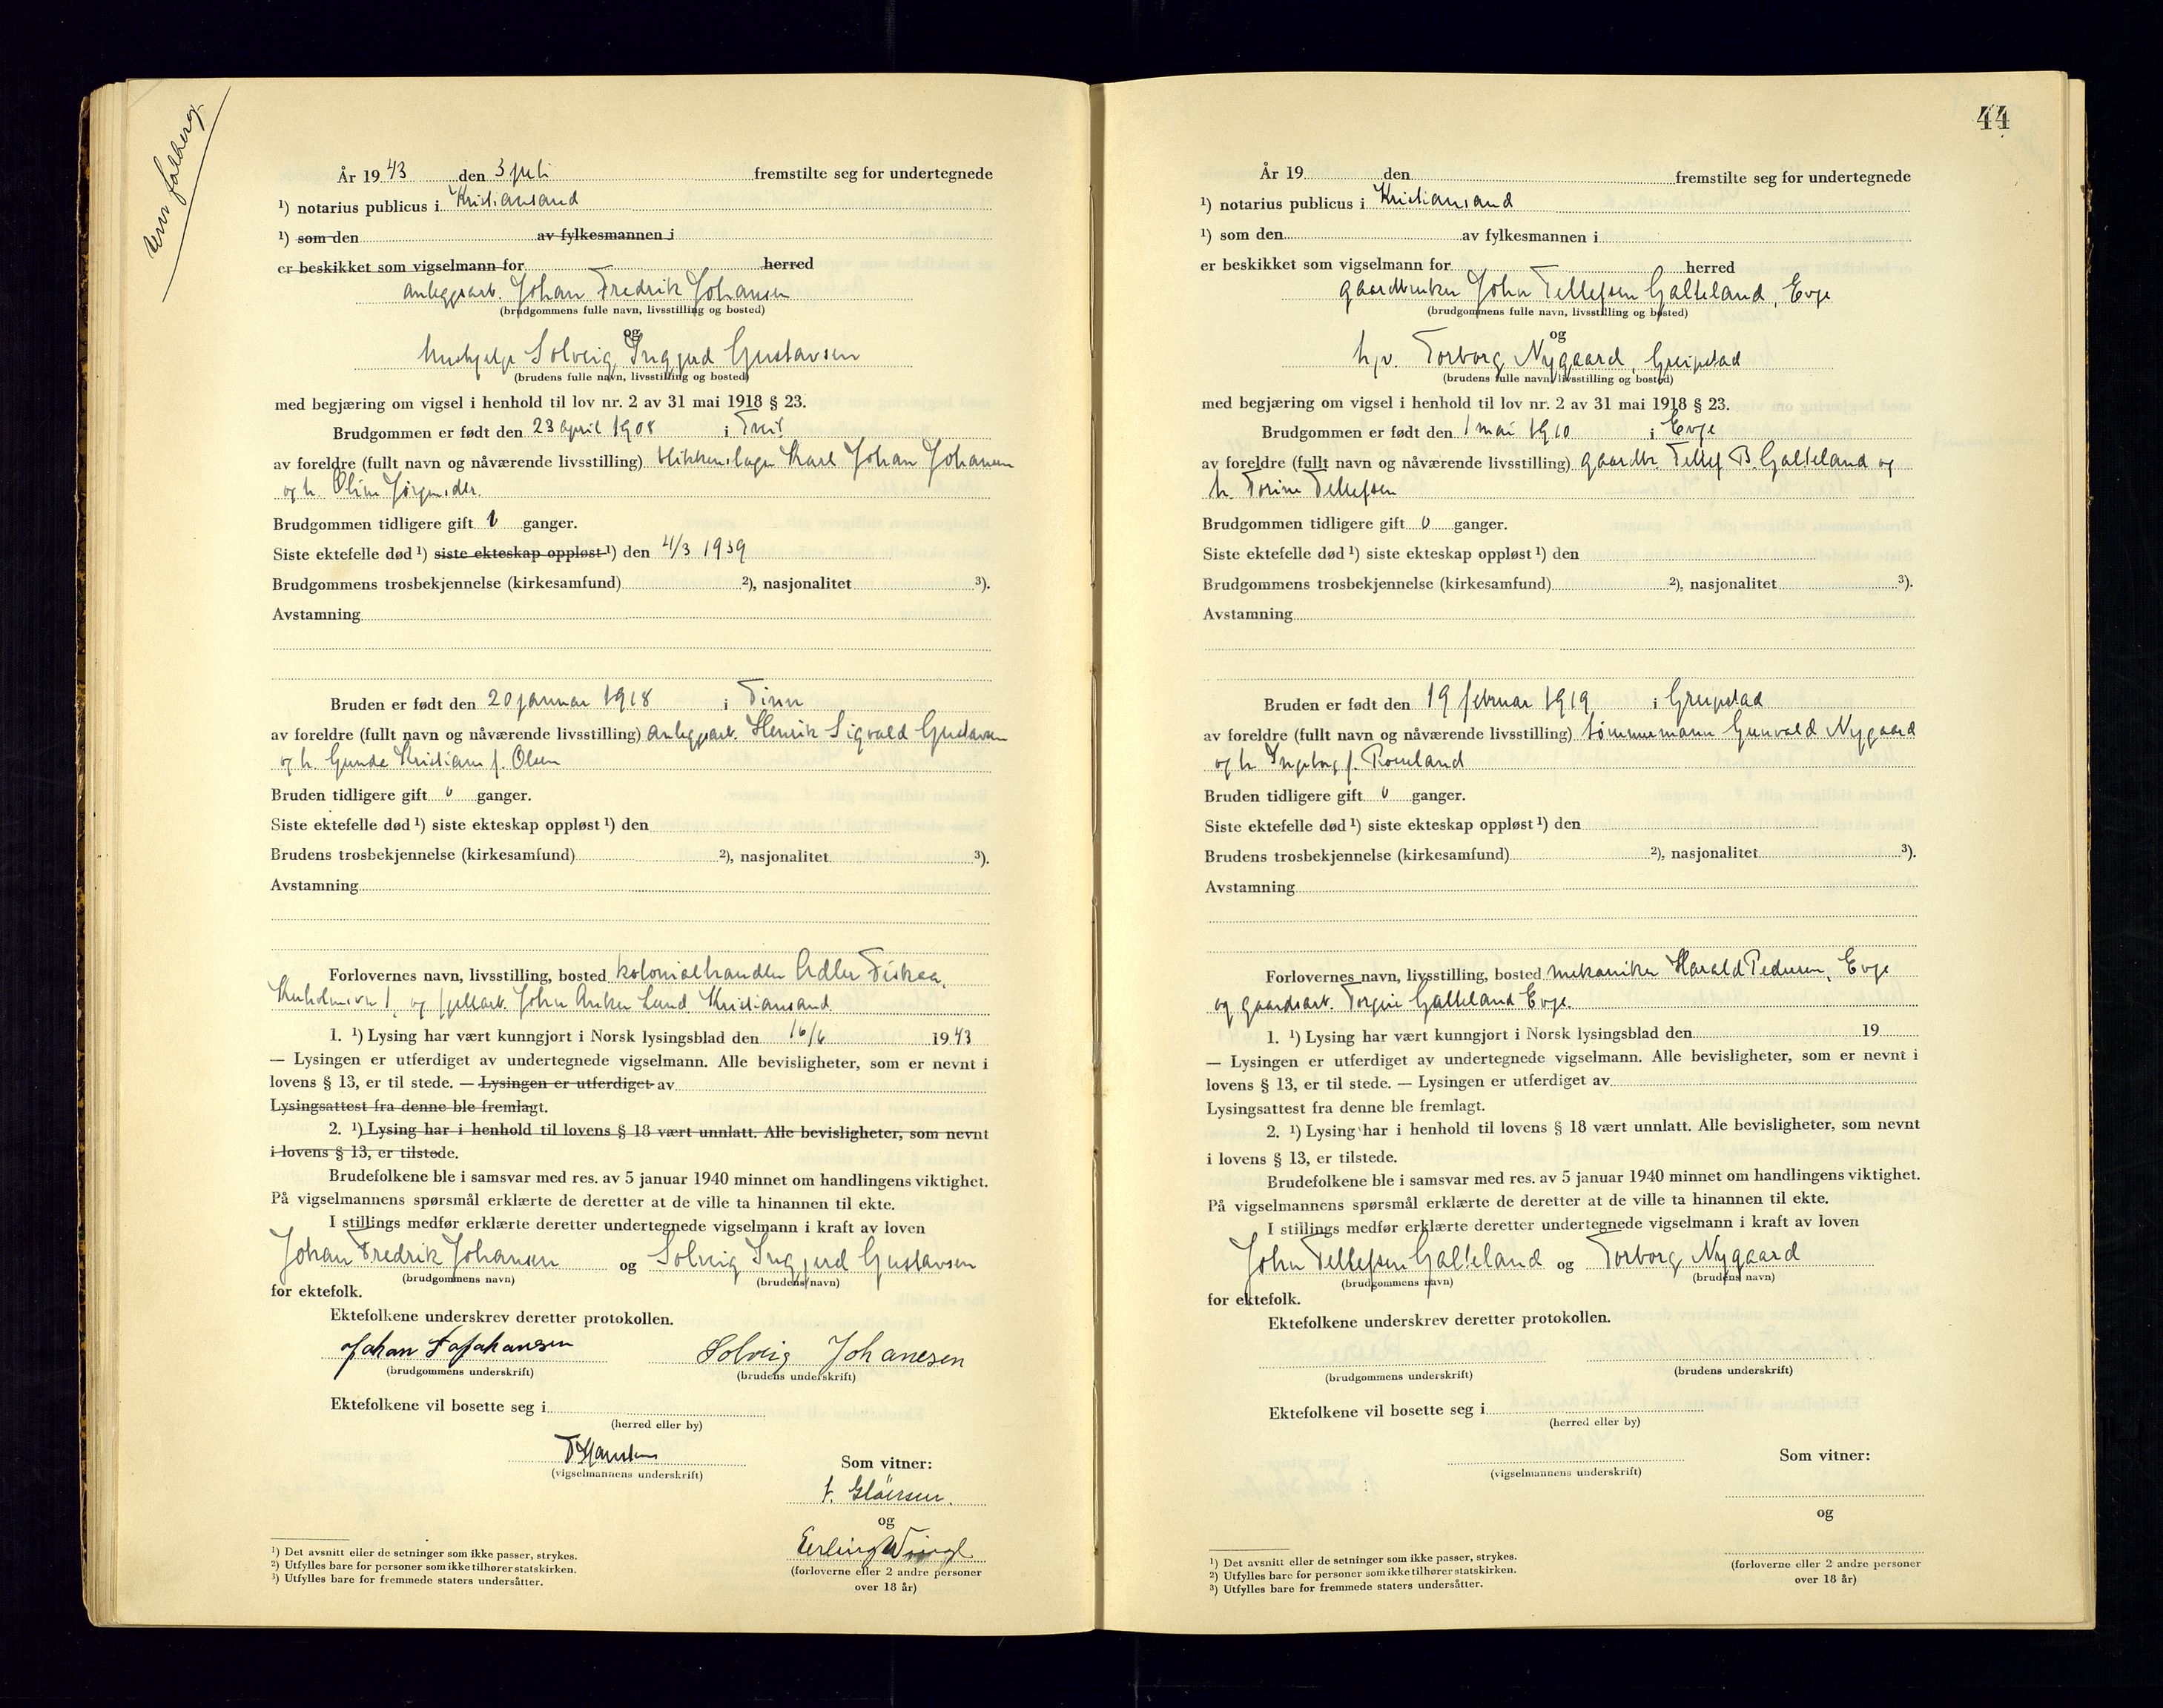 År 19 43 den 3 juli fremstilte seg for undertegnede
¹) notarius publicus i Kristiansand
¹) som den av fylkesmannen i
er beskikket som vigselmann for herred
anleggsarb. Johan Fredrik Johansen
(brudgommens fulle navn, livsstilling og bosted)
og
hushjelp Solveig Ingjerd Gustavsen
(brudens fulle navn, livsstilling og bosted)
med begjæring om vigsel i henhold til lov nr. 2 av 31 mai 1918 § 23.
Brudgommen er født den 23 april 1908 i
av foreldre (fullt navn og nåværende livsstilling) blikkenslager Karl Johan Johansen
og h. Oline Jørgensdtr.
Brudgommen tidligere gift 1 ganger.
Siste ektefelle død ¹) siste ekteskap oppløst ¹) den 4/3 1939
Brudgommens trosbekjennelse (kirkesamfund) ²), nasjonalitet ³).
Avstamning
Bruden er født den 20 januar 1918 i Tinn
av foreldre (fullt navn og nåværende livsstilling) anleggsarb. Henrik Sigvald Gustavsen
og h. Gunda Kristians f. Olsen
Bruden tidligere gift 0 ganger.
Siste ektefelle død ¹) siste ekteskap oppløst ¹) den
Brudens trosbekjennelse (kirkesamfund) ²), nasjonalitet ³).
Avstamning
Forlovernes navn, livsstilling, bosted kolonialhandler Adler Fiskaa,
Kuholmsvn 1, og fjellarb. John Anker Lund Kristiansand.
1. ¹) Lysing har vært kunngjort i Norsk lysingsblad den 16/6 19 43
— Lysingen er utferdiget av undertegnede vigselmann. Alle bevisligheter, som er nevnt i
lovens § 13, er til stede. — Lysingen er utferdiget av
Lysingsattest fra denne ble fremlagt.
2. ¹) Lysing har i henhold til lovens § 18 vært unnlatt. Alle bevisligheter, som nevnt
i lovens § 13, er tilstede.
Brudefolkene ble i samsvar med res. av 5 januar 1940 minnet om handlingens viktighet.
På vigselmannens spørsmål erklærte de deretter at de ville ta hinannen til ekte.
I stillings medfør erklærte deretter undertegnede vigselmann i kraft av loven
Johan Fredrik Johansen og Solveig Ingjerd Gustavsen
(brudgommens navn) (brudens navn)
for ektefolk.
Ektefolkene underskrev deretter protokollen.
Johan F Johansen Solveig Johansen
(brudgommens underskrift) (brudens underskrift)
Ektefolkene vil bosette seg i
(herred eller by)
(vigselmannens underskrift)
Som vitner:
Gløersen.
og
Erling
(forloverne eller 2 andre personer
over 18 år)
¹) Det avsnitt eller de setninger som ikke passer, strykes.
²) Utfylles bare for personer som ikke tilhører statskirken.
³) Utfylles bare for fremmede staters undersåtter.
44
År 19 den fremstilte seg for undertegnede
¹) notarius publicus i Kristiansand
¹) som den av fylkesmannen i
er beskikket som vigselmann for herred
gaardbruker John Tellefsen Galteland, Evje
(brudgommens fulle navn, livsstilling og bosted)
og
hpv. Torborg Nygaard, Greipstad
(brudens fulle navn, livsstilling og bosted)
med begjæring om vigsel i henhold til lov nr. 2 av 31 mai 1918 § 23.
Brudgommen er født den 1 mai 1910 i Evje
av foreldre (fullt navn og nåværende livsstilling) gaardbr. Tellef B. Galteland og
h. Torine Tellefsen
Brudgommen tidligere gift 0 ganger.
Siste ektefelle død ¹) siste ekteskap oppløst ¹) den
Brudgommens trosbekjennelse (kirkesamfund) ²), nasjonalitet ³).
Avstamning
Bruden er født den 19 februar 1919 i Greipstad
av foreldre (fullt navn og nåværende livsstilling) tømmermann Gunvald Nygaard
og h. Ingeborg f. Rosseland
Bruden tidligere gift 0 ganger.
Siste ektefelle død ¹) siste ekteskap oppløst ¹) den
Brudens trosbekjennelse (kirkesamfund) ²), nasjonalitet ³).
Avstamning
Forlovernes navn, livsstilling, bosted mekaniker Harald Pedersen, Evje
og gaardsarb. Torgeir Galteland Evje.
1. ¹) Lysing har vært kunngjort i Norsk lysingsblad den 19
— Lysingen er utferdiget av undertegnede vigselmann. Alle bevisligheter, som er nevnt i
lovens § 13, er til stede. — Lysingen er utferdiget av
Lysingsattest fra denne ble fremlagt.
2. ¹) Lysing har i henhold til lovens § 18 vært unnlatt. Alle bevisligheter, som nevnt
i lovens § 13, er tilstede.
Brudefolkene ble i samsvar med res. av 5 januar 1940 minnet om handlingens viktighet.
På vigselmannens spørsmål erklærte de deretter at de ville ta hinannen til ekte.
I stillings medfør erklærte deretter undertegnede vigselmann i kraft av loven
John Tellefsen Galteland og Torborg Nygaard
(brudgommens navn) (brudens navn)
for ektefolk.
Ektefolkene underskrev deretter protokollen.
(brudgommens underskrift) (brudens underskrift)
Ektefolkene vil bosette seg i
(herred eller by)
(vigselmannens underskrift)
Som vitner:
og
(forloverne eller 2 andre personer
over 18 år)
¹) Det avsnitt eller de setninger som ikke passer, strykes.
²) Utfylles bare for personer som ikke tilhører statskirken.
³) Utfylles bare for fremmede staters undersåtter.